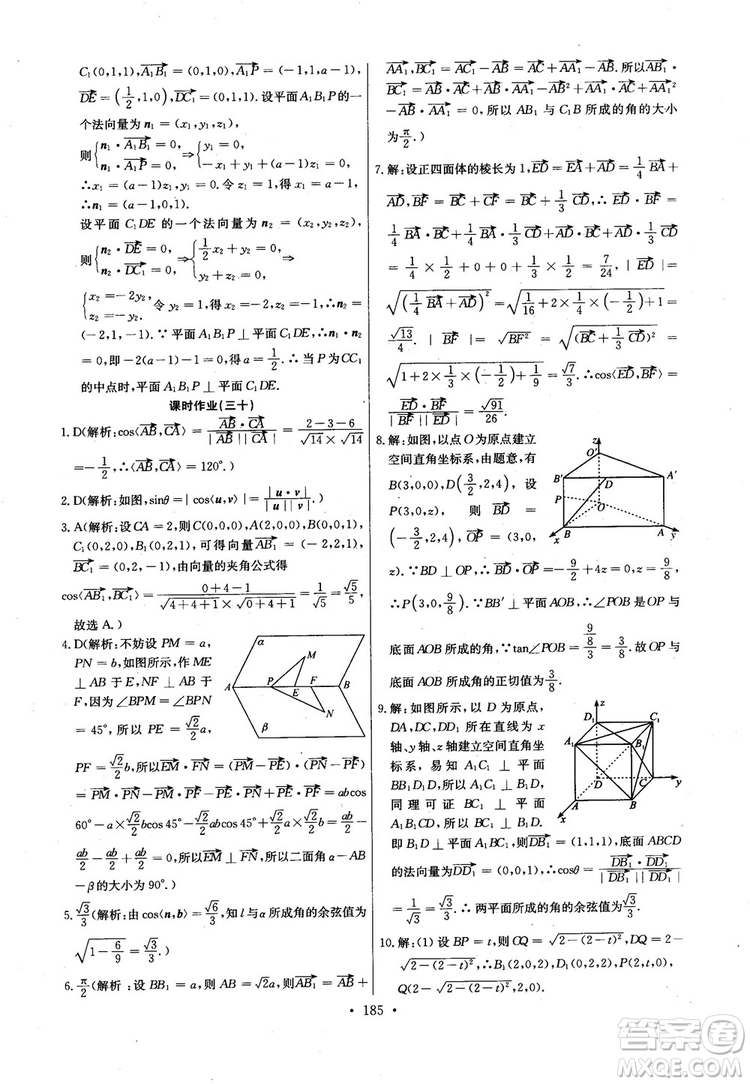 C₁(0,1,1),A₁B₁→=(0,1,0),A₁P→=(-1,1,a-1),
DE→=(1/2,1,0),DC₁→=(0,1,1).设平面A₁B₁P的一
个法向量为n₁=(x₁,y₁,z₁),
则{n₁·A₁B₁→=0, n₁·A₁P→=0, ⇒{y₁=0, -x₁+y₁+(a-1)z₁=0,
∴x₁=(a-1)z₁,y₁=0.令z₁=1,得x₁=a-1,
∴n₁=(a-1,0,1).
设平面C₁DE的一个法向量为n₂=(x₂,y₂,z₂),
则{n₂·DE→=0, n₂·DC₁→=0, ⇒{1/2x₂+y₂=0, y₂+z₂=0 ⇒
{x₂=-2y₂, z₂=-y₂.令y₂=1,得x₂=-2,z₂=-1,∴n₂=
(-2,1,-1).∵平面A₁B₁P⊥平面C₁DE,∴n₁·n₂
=0,即-2(a-1)-1=0,得a=1/2.∴当P为CC₁
的中点时,平面A₁B₁P⊥平面C₁DE.
课时作业(三十)
1.D(解析:cos⟨AB→,CA→⟩=AB→·CA→/|AB→||CA→|=(2-3-6)/(√14×√14)
=-1/2,∴⟨AB→,CA→⟩=120°.)
2.D(解析:如图,sinθ=|cos⟨u,v⟩|=|u·v|/|u||v|.)
3.A(解析:设CA=2,则C(0,0,0),A(2,0,0),B(0,
0,1),C₁(0,2,0),B₁(0,2,1),可得向量AB₁→=(-2,2,1),
BC₁→=(0,2,-1),由向量的夹角公式得
cos⟨AB₁→,BC₁→⟩=(0+4-1)/(√(4+4+1)×√(0+4+1))=1/√5=√5/5,
故选A.)
4.D(解析:不妨设PM=a,
PN=b,如图所示,作ME
⊥AB于E,NF⊥AB于
F,因为∠BPM=∠BPN
=45°,所以PE=√2/2a,
PF=√2/2b,所以EM→·FN→=(PM→-PE→)·(PN→-PF→)
=PM→·PN→-PM→·PF→-PE→·PN→+PE→·PF→=abcos
60°-a×√2/2bcos45°-√2/2abcos45°+√2/2a×√2/2b=
ab/2-ab/2-ab/2+ab/2=0,所以EM→⊥FN→,所以二面角α—AB
—β的大小为90°.)
5.√3/3(解析:由cos⟨n,b⟩=√6/3,知l与α所成角的余弦值为
√(1-6/9)=√3/3.)
6.π/2(解析:设BB₁=a,则AB=√2a,则AB₁→=AB→+
AA₁→,BC₁→=AC₁→-AB→=AC→+AA₁→-AB→.所以AB₁→·
BC₁→=(AB→+AA₁→)·(AC→+AA₁→-AB→)=AB→·AC→+
AB→·AA₁→-AB→²+AA₁→·AC→+AA₁→²
-AB→·AA₁→=0,所以AB₁与C₁B所成的角的大小
为π/2.)
7.解:设正四面体的棱长为1,ED→=EA→+AD→=1/4BA→+
AD→,BF→=BC→+CF→=BC→+1/3CD→,∴ED→·BF→=
1/4BA→·BC→+AD→·BC→+1/4·1/3BA→·CD→+1/3AD→·CD→
=1/4×1/2+0+0+1/3×1/2=7/24,|ED→|=
√(1/4BA→+AD→)²=√(1/16+2×1/4×(-1/2)+1)=
√13/4.|BF→|=√BF²=√(BC→+1/3CD→)²=
√(1+2×1/3×(-1/2)+1/9)=√7/3.∴cos⟨ED→,BF→⟩=
ED→·BF→/|BF→||ED→|=√91/26.
8.解:如图,以点O为原点建立
空间直角坐标系,由题意,有
B(3,0,0),D(3/2,2,4),设
P(3,0,z),则BD→=
(-3/2,2,4),OP→=(3,0,
z).∵BD⊥OP,∴BD→·OP→=-9/2+4z=0,z=9/8.
∴P(3,0,9/8).∵BB′⊥平面AOB,∴∠POB是OP与
底面AOB所成的角,∵tan∠POB=(9/8)/3=3/8.故OP与
底面AOB所成角的正切值为3/8.
9.解:如图所示,以D为原点,
DA,DC,DD₁所在直线为x
轴、y轴、z轴建立空间直角坐
标系,易知A₁C₁⊥平面
BB₁D₁D,∴B₁D⊥A₁C₁,
同理可证BC₁⊥平面
A₁B₁CD,∴B₁D⊥BC₁.
即B₁D⊥平面A₁BC₁,则DB₁→=(1,1,1),底面ABCD
的法向量为DD₁→=(0,0,1),cosθ=DB₁→·DD₁→/|DB₁→||DD₁→|=
1/√3=√3/3.∴两平面所成的角的余弦值为√3/3.
10.解:(1)设BP=t,则CQ=√(2-(2-t)²),DQ=2-
√(2-(2-t)²),∴B₁(2,0,2),D₁(0,2,2),P(2,t,0),
Q(2-√(2-(2-t)²),2,0).
α
M
A
P
E
F
B
N
β
z
O′
B′
A′
D
P
O
x
B
A
y
z
D₁
C₁
A₁
B₁
D
C
y
A
B
x
· 185 ·
答案圈
MXQE.COM